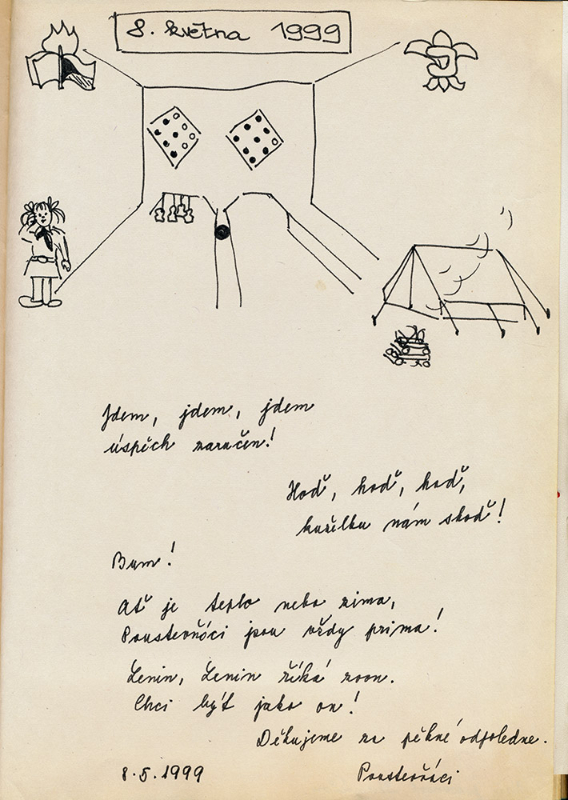 8. května 1999
Jdem, jdem, jdem
úspěch zaručen!
Hoď, hoď, hoď,
kuželku nám shoď!
Bum!
Ať je teplo nebo zima,
Poustevňáci jsou vždy prima!
Lenin, Lenin říká zoon.
Chci být jako on!
Děkujeme za pěkné odpoledne.
8.5.1999
Poustevňáci